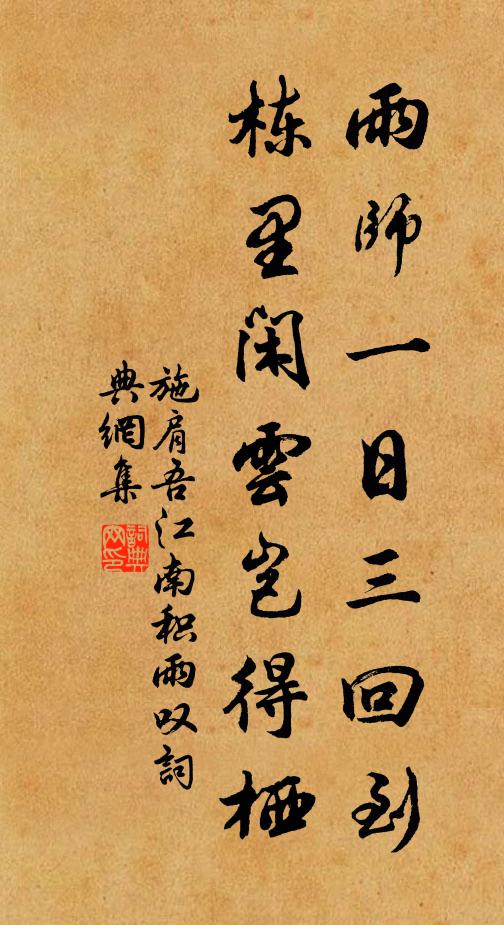 雨師一日三回到
栋里闲雲岂得栖
施肩吾江南积雨叹詞
典網集
詞典网印